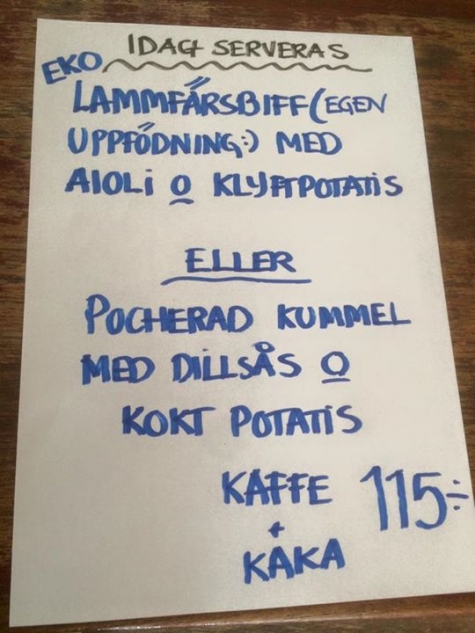 IDAG SERVERAS
EKO
LAMMFÄRSBIFF (EGEN
UPPFÖDNING:) MED
AIOLI O KLYFTPOTATIS
ELLER
POCHERAD KUMMEL
MED DILLSÅS O
KOKT POTATIS
KAFFE 115:-
+
KAKA